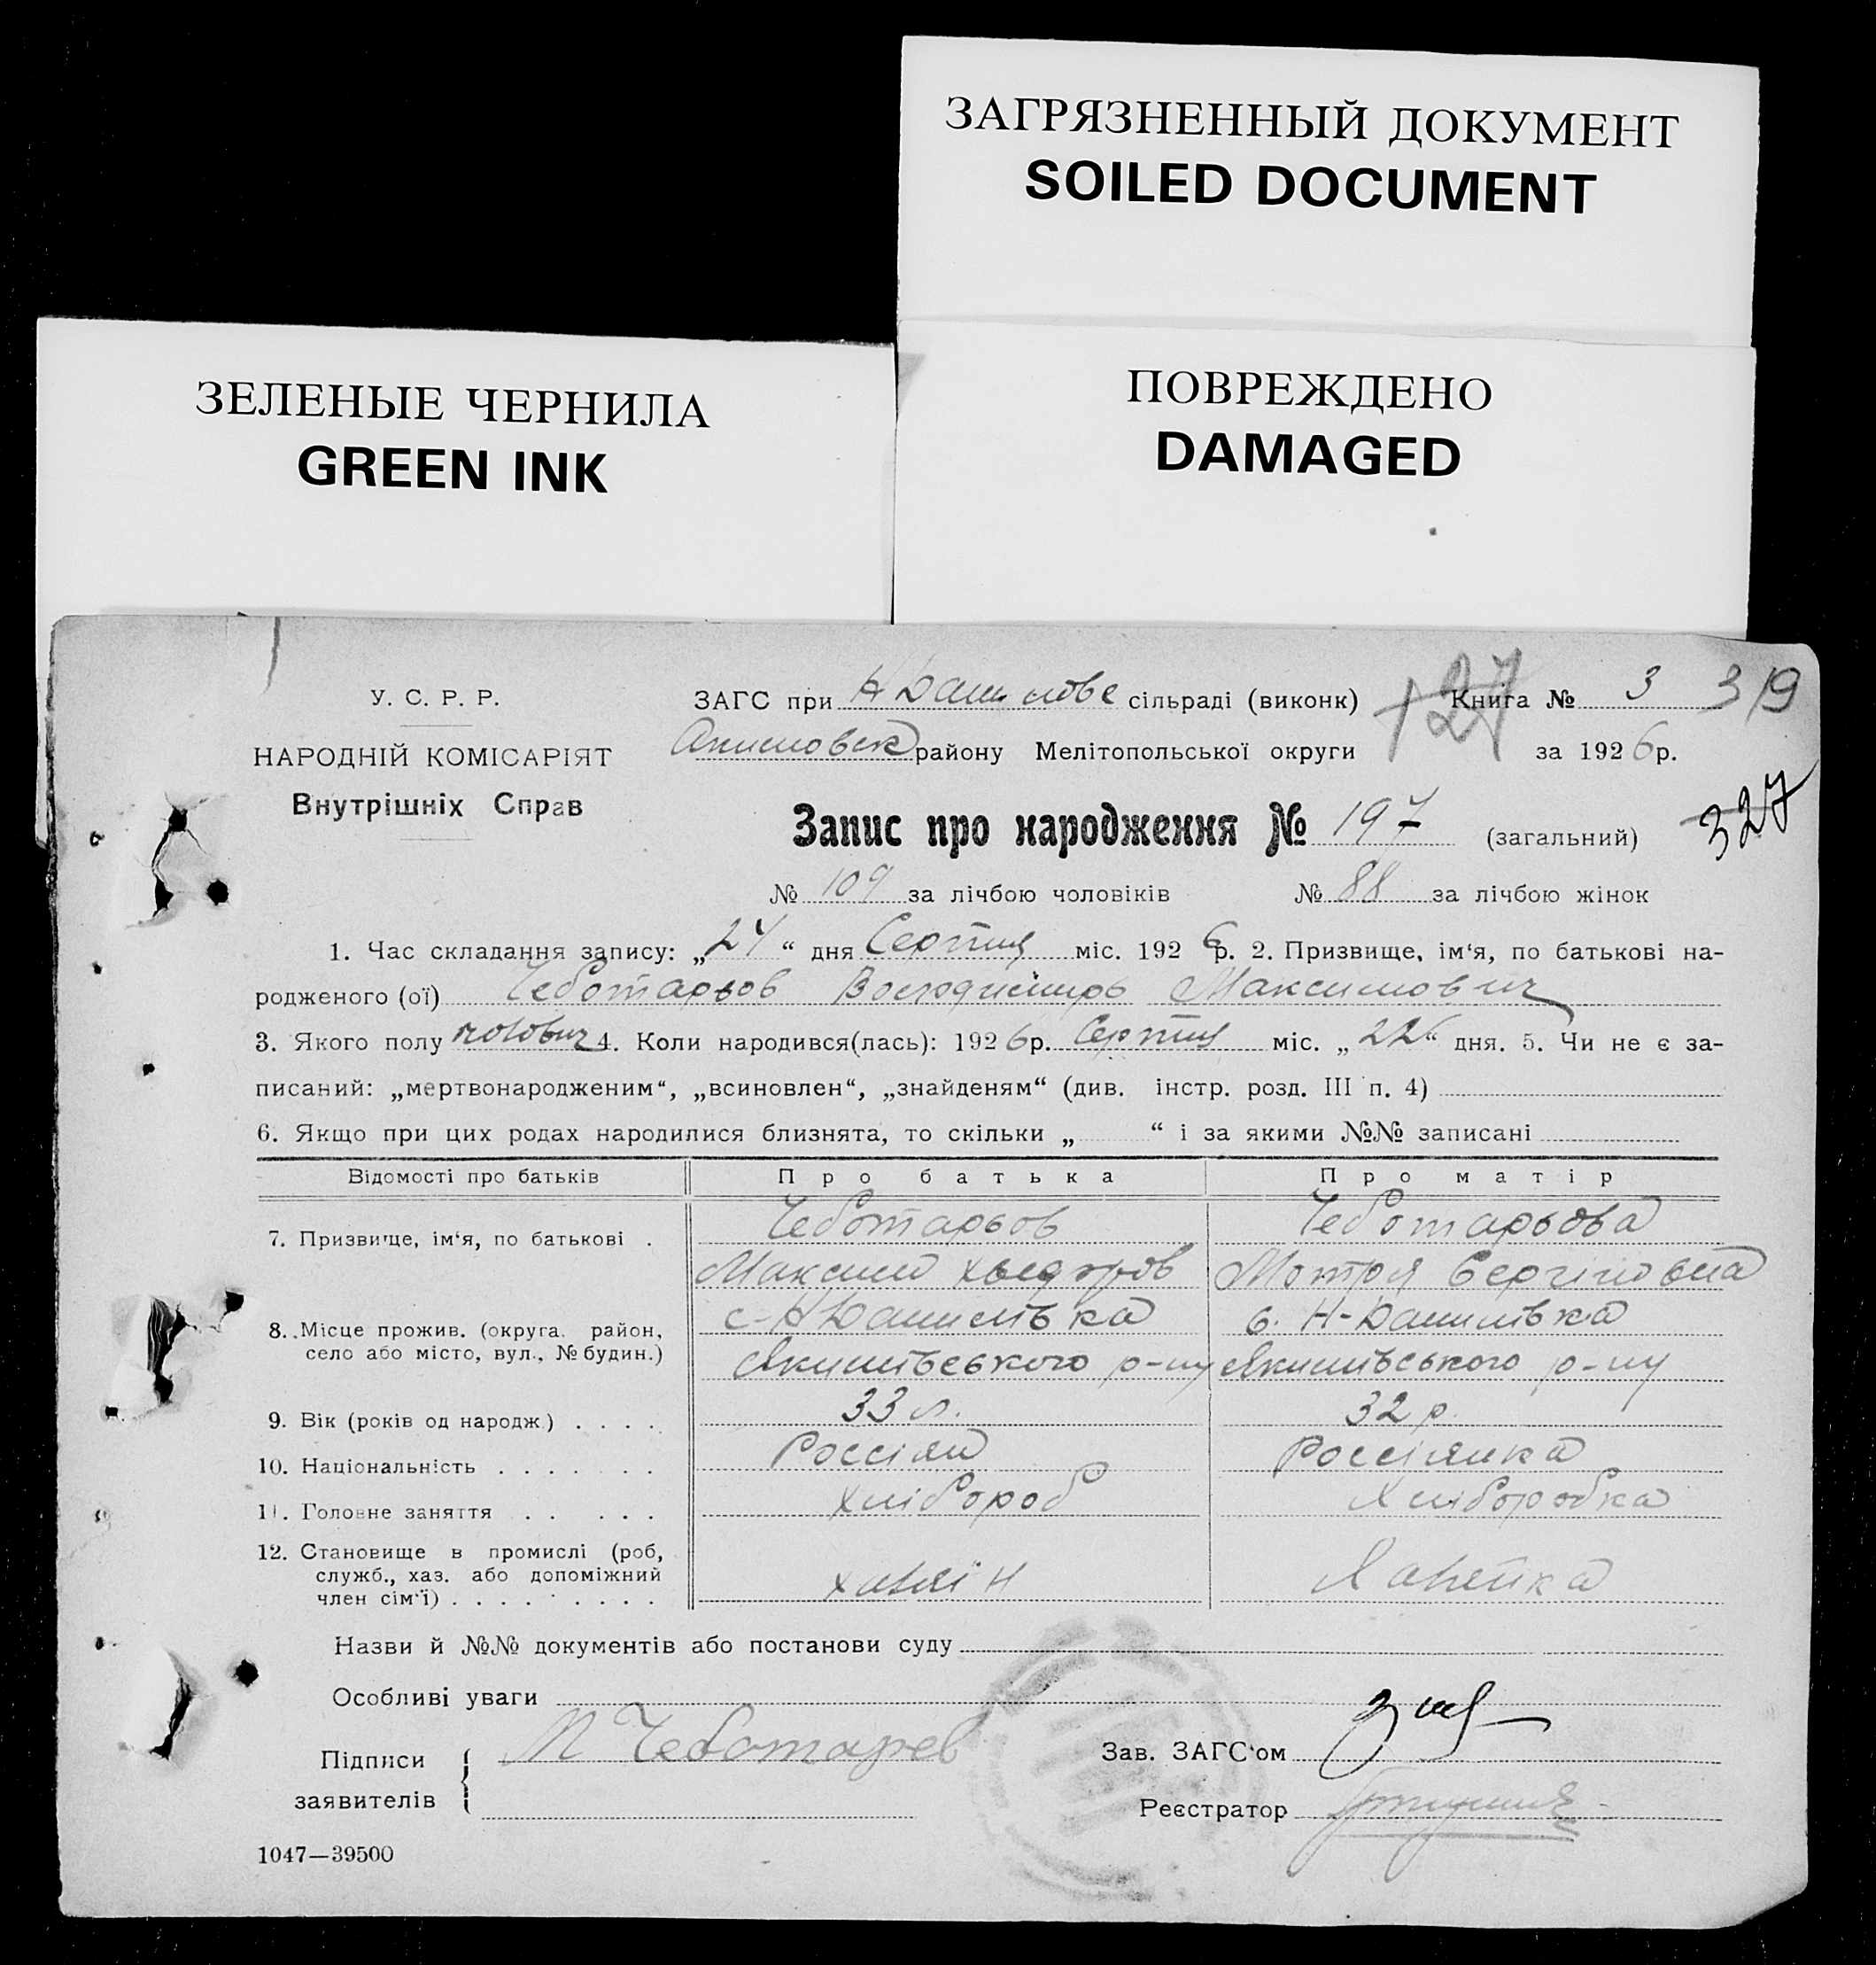 ЗАГРЯЗНЕННЫЙ ДОКУМЕНТ
SOILED DOCUMENT
ЗЕЛЕНЫЕ ЧЕРНИЛА
GREEN INK
ПОВРЕЖДЕНО
DAMAGED
У. С. Р. Р.
НАРОДНІЙ КОМІСАРІЯТ
Внутрішніх Справ
ЗАГС при сільраді (виконк) 127 Книга № 3 319
Акимовск району Мелітопольської округи за 1926р.
327
Запис про народження № 197 (загальний)
№ 109 за лічбою чоловіків № 88 за лічбою жінок
1. Час складання запису: „24“ дня Серпня міс. 1926р. 2. Призвище, ім‘я, по батькові на-
родженого (ої) Чеботарьов Володимирь Максимович
3. Якого полу чоловіч 4. Коли народився(лась): 1926р. Серпня міс. „22“ дня. 5. Чи не є за-
писаний: „мертвонародженим“, „всиновлен“, „знайденям“ (див. інстр. розд. III п. 4)
6. Якщо при цих родах народилися близнята, то скільки „ “ і за якими №№ записані
Відомості про батьків Про батька Про матір
7. Призвище, ім‘я, по батькові . Чеботарьов Чеботарьова
Максим Хведоров Мотря Сергіїовна
8. Місце прожив. (округа, район, село або місто, вул., № будин.) с-Н Данилівка с. Н-Данилівка
Якимівського р-ну Якимівського р-ну
9. Вік (років од народж.) . . . . 33 л. 32 р.
10. Національність . . . . . . . Россіян Россіянка
11. Головне заняття . . . . . Хлібороб Хліборобка
12. Становище в промислі (роб, служб., хаз. або допоміжний член сім‘ї) . . . . . . . . . Хазяїн Хазяйка
Назви й №№ документів або постанови суду
Особливі уваги
Підписи заявителів { М Чеботарев
Зав. ЗАГС‘ом
Реєстратор
1047—39500